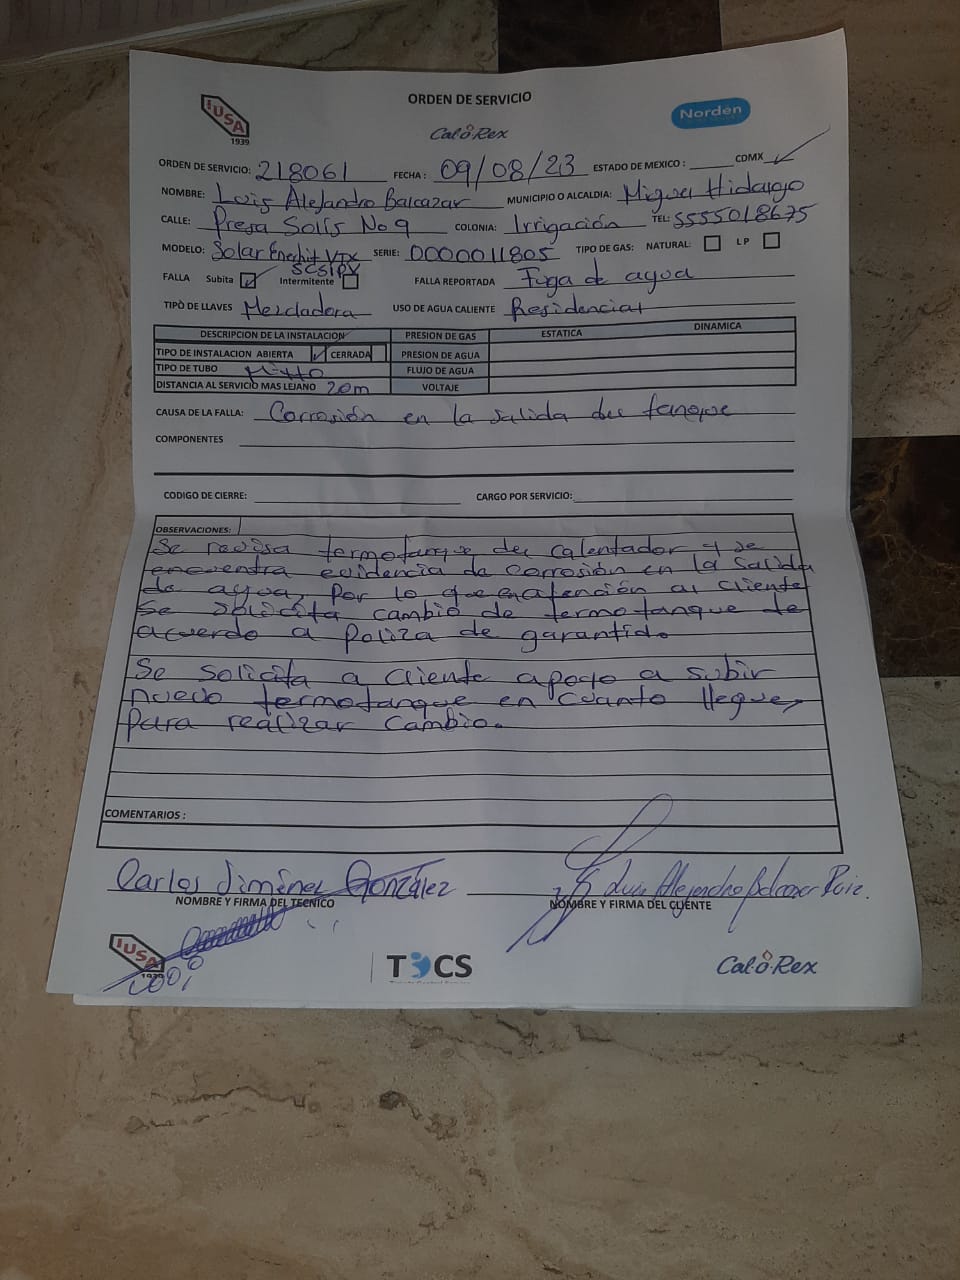 ORDEN DE SERVICIO
IUSA
1939
Cal-o-Rex
Norden
ORDEN DE SERVICIO: 218061 FECHA: 09/08/23 ESTADO DE MEXICO: CDMX ✓
NOMBRE: Luis Alejandro Balcazar MUNICIPIO O ALCALDIA: Miguel Hidalgo
CALLE: Presa Solís No 9 COLONIA: Irrigación TEL: 5555018675
MODELO: Solar SERIE: 0000011805 TIPO DE GAS: NATURAL: LP
FALLA Subita ✓ Intermitente FALLA REPORTADA Fuga de agua
TIPO DE LLAVES Mezcladora USO DE AGUA CALIENTE Residencial
DESCRIPCION DE LA INSTALACION PRESION DE GAS ESTATICA DINAMICA
TIPO DE INSTALACION ABIERTA ✓ CERRADA PRESION DE AGUA
TIPO DE TUBO FLUJO DE AGUA
DISTANCIA AL SERVICIO MAS LEJANO 20m VOLTAJE
CAUSA DE LA FALLA: Corrosión en la salida del tanque
COMPONENTES
CODIGO DE CIERRE: CARGO POR SERVICIO:
OBSERVACIONES:
Se revisa termotanque del calentador y se
encuentra evidencia de corrosión en la salida
de agua, por lo que en atención al cliente
se solicita cambio de termotanque de
acuerdo a poliza de garantía.
Se solicita a cliente apoyo a subir
nuevo termotanque en cuanto llegue,
para realizar cambio.
COMENTARIOS:
Carlos Jiménez González Luis Alejandro Balcazar Ruiz.
NOMBRE Y FIRMA DEL TECNICO NOMBRE Y FIRMA DEL CLIENTE
IUSA
1939
TCS
Cal-o-Rex